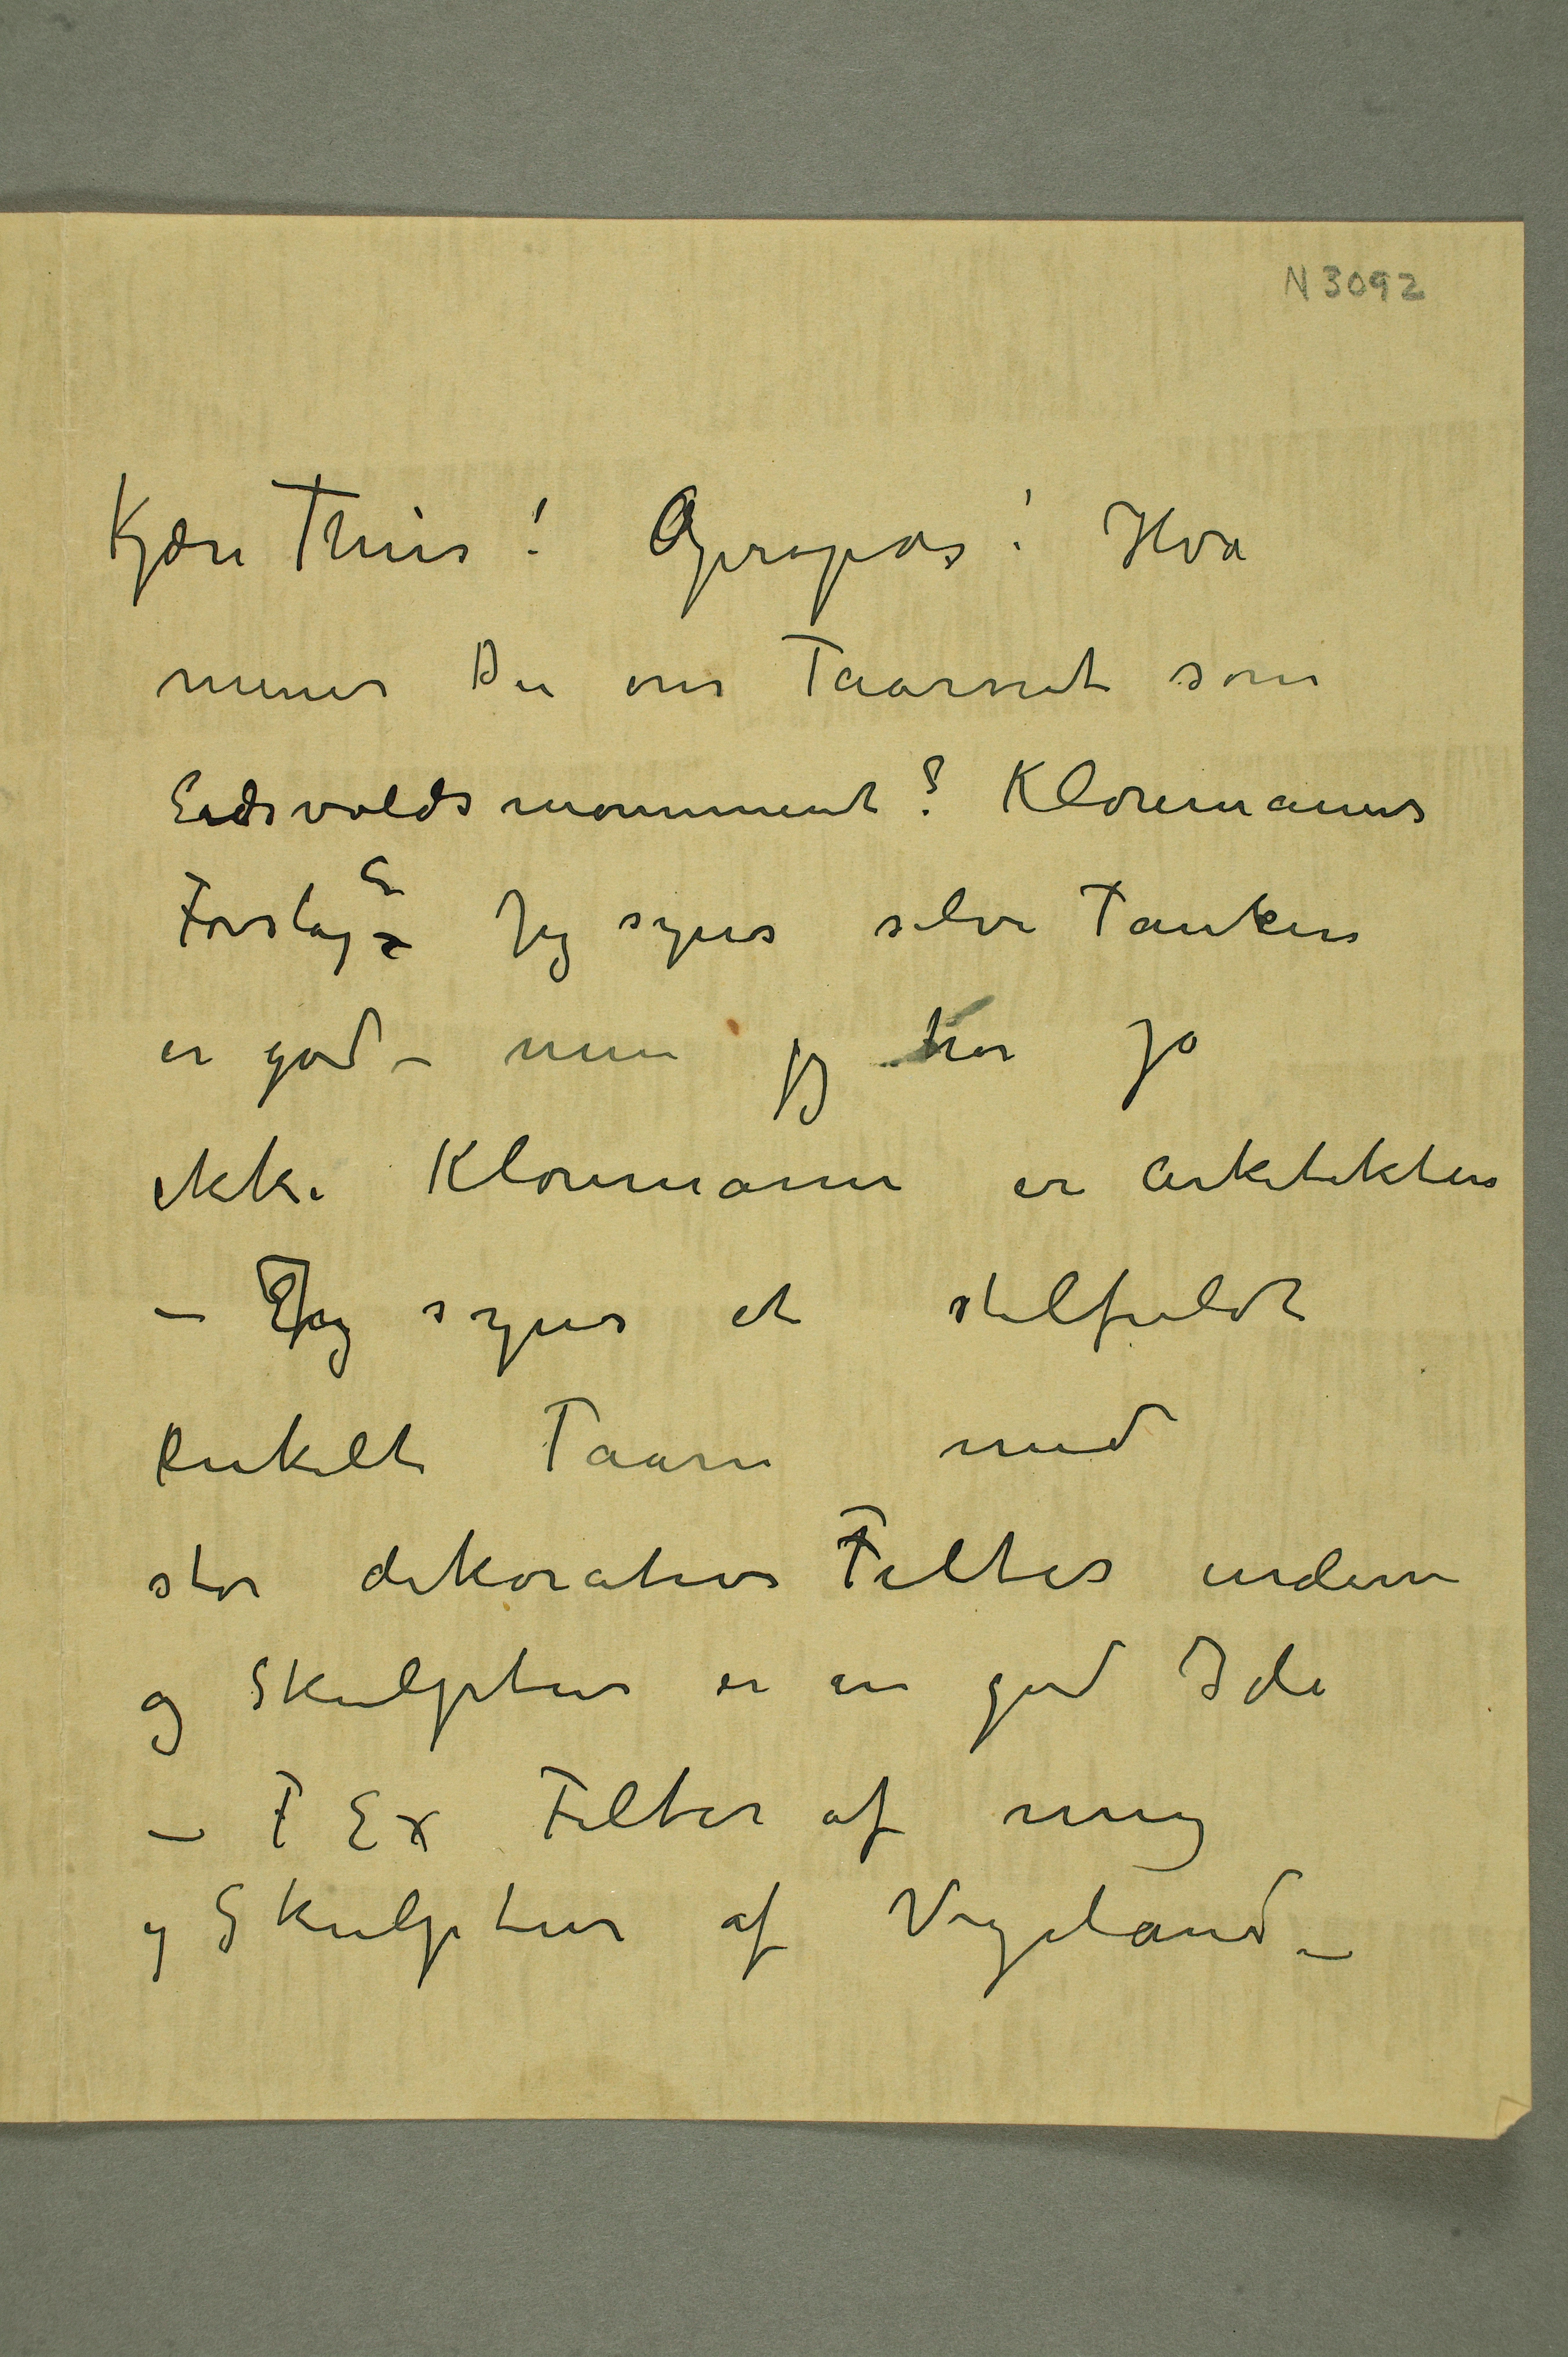 N 3092
Kjære Thiis! Apropos! Hva
mener Du om Taarnet som
Eidsvoldsmonument? Kloumanns
Forslag? Jeg synes selve Tanken
er god – men jeg tror jo
ikke Kloumann er arkitekten
– Jeg synes et stilfuldt
enkelt Taarn med
stor dekorative Felter inden
og Skulptur er en god Ide
– F Ex Felter af mig
og Skulptur af Vigeland –